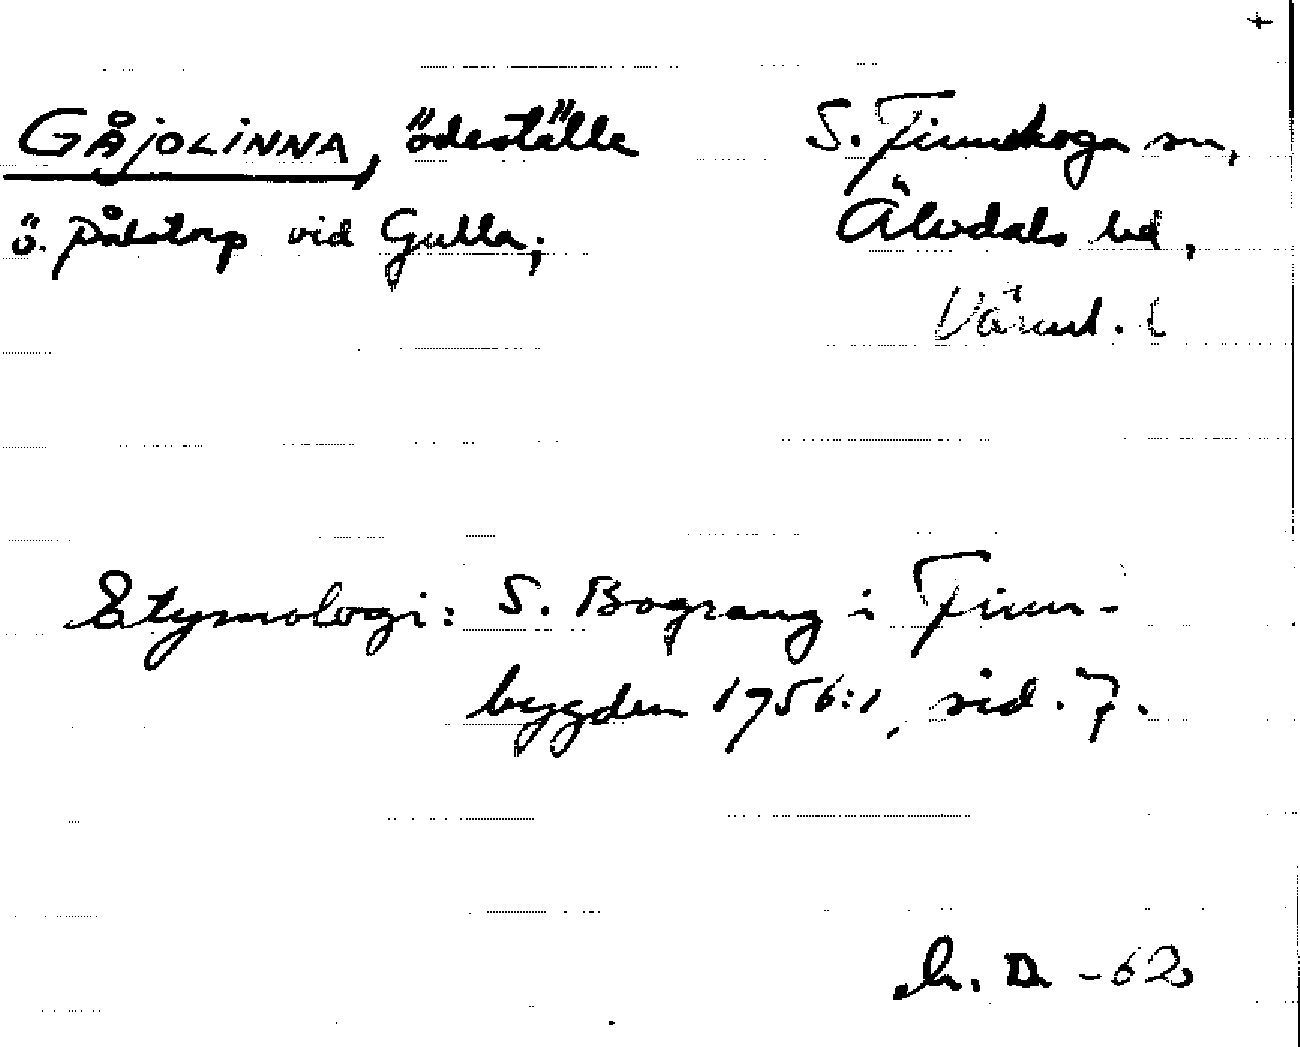 +
GÅJOLINNA, ödeställe
ö. Pålstorp vid Gulla;
S. Finnskoga sn,
Älvdals hd,
Värml. l
Etymologi: S. Bograng i Finn-
bygden 1956:1, sid. 7.
D. -62